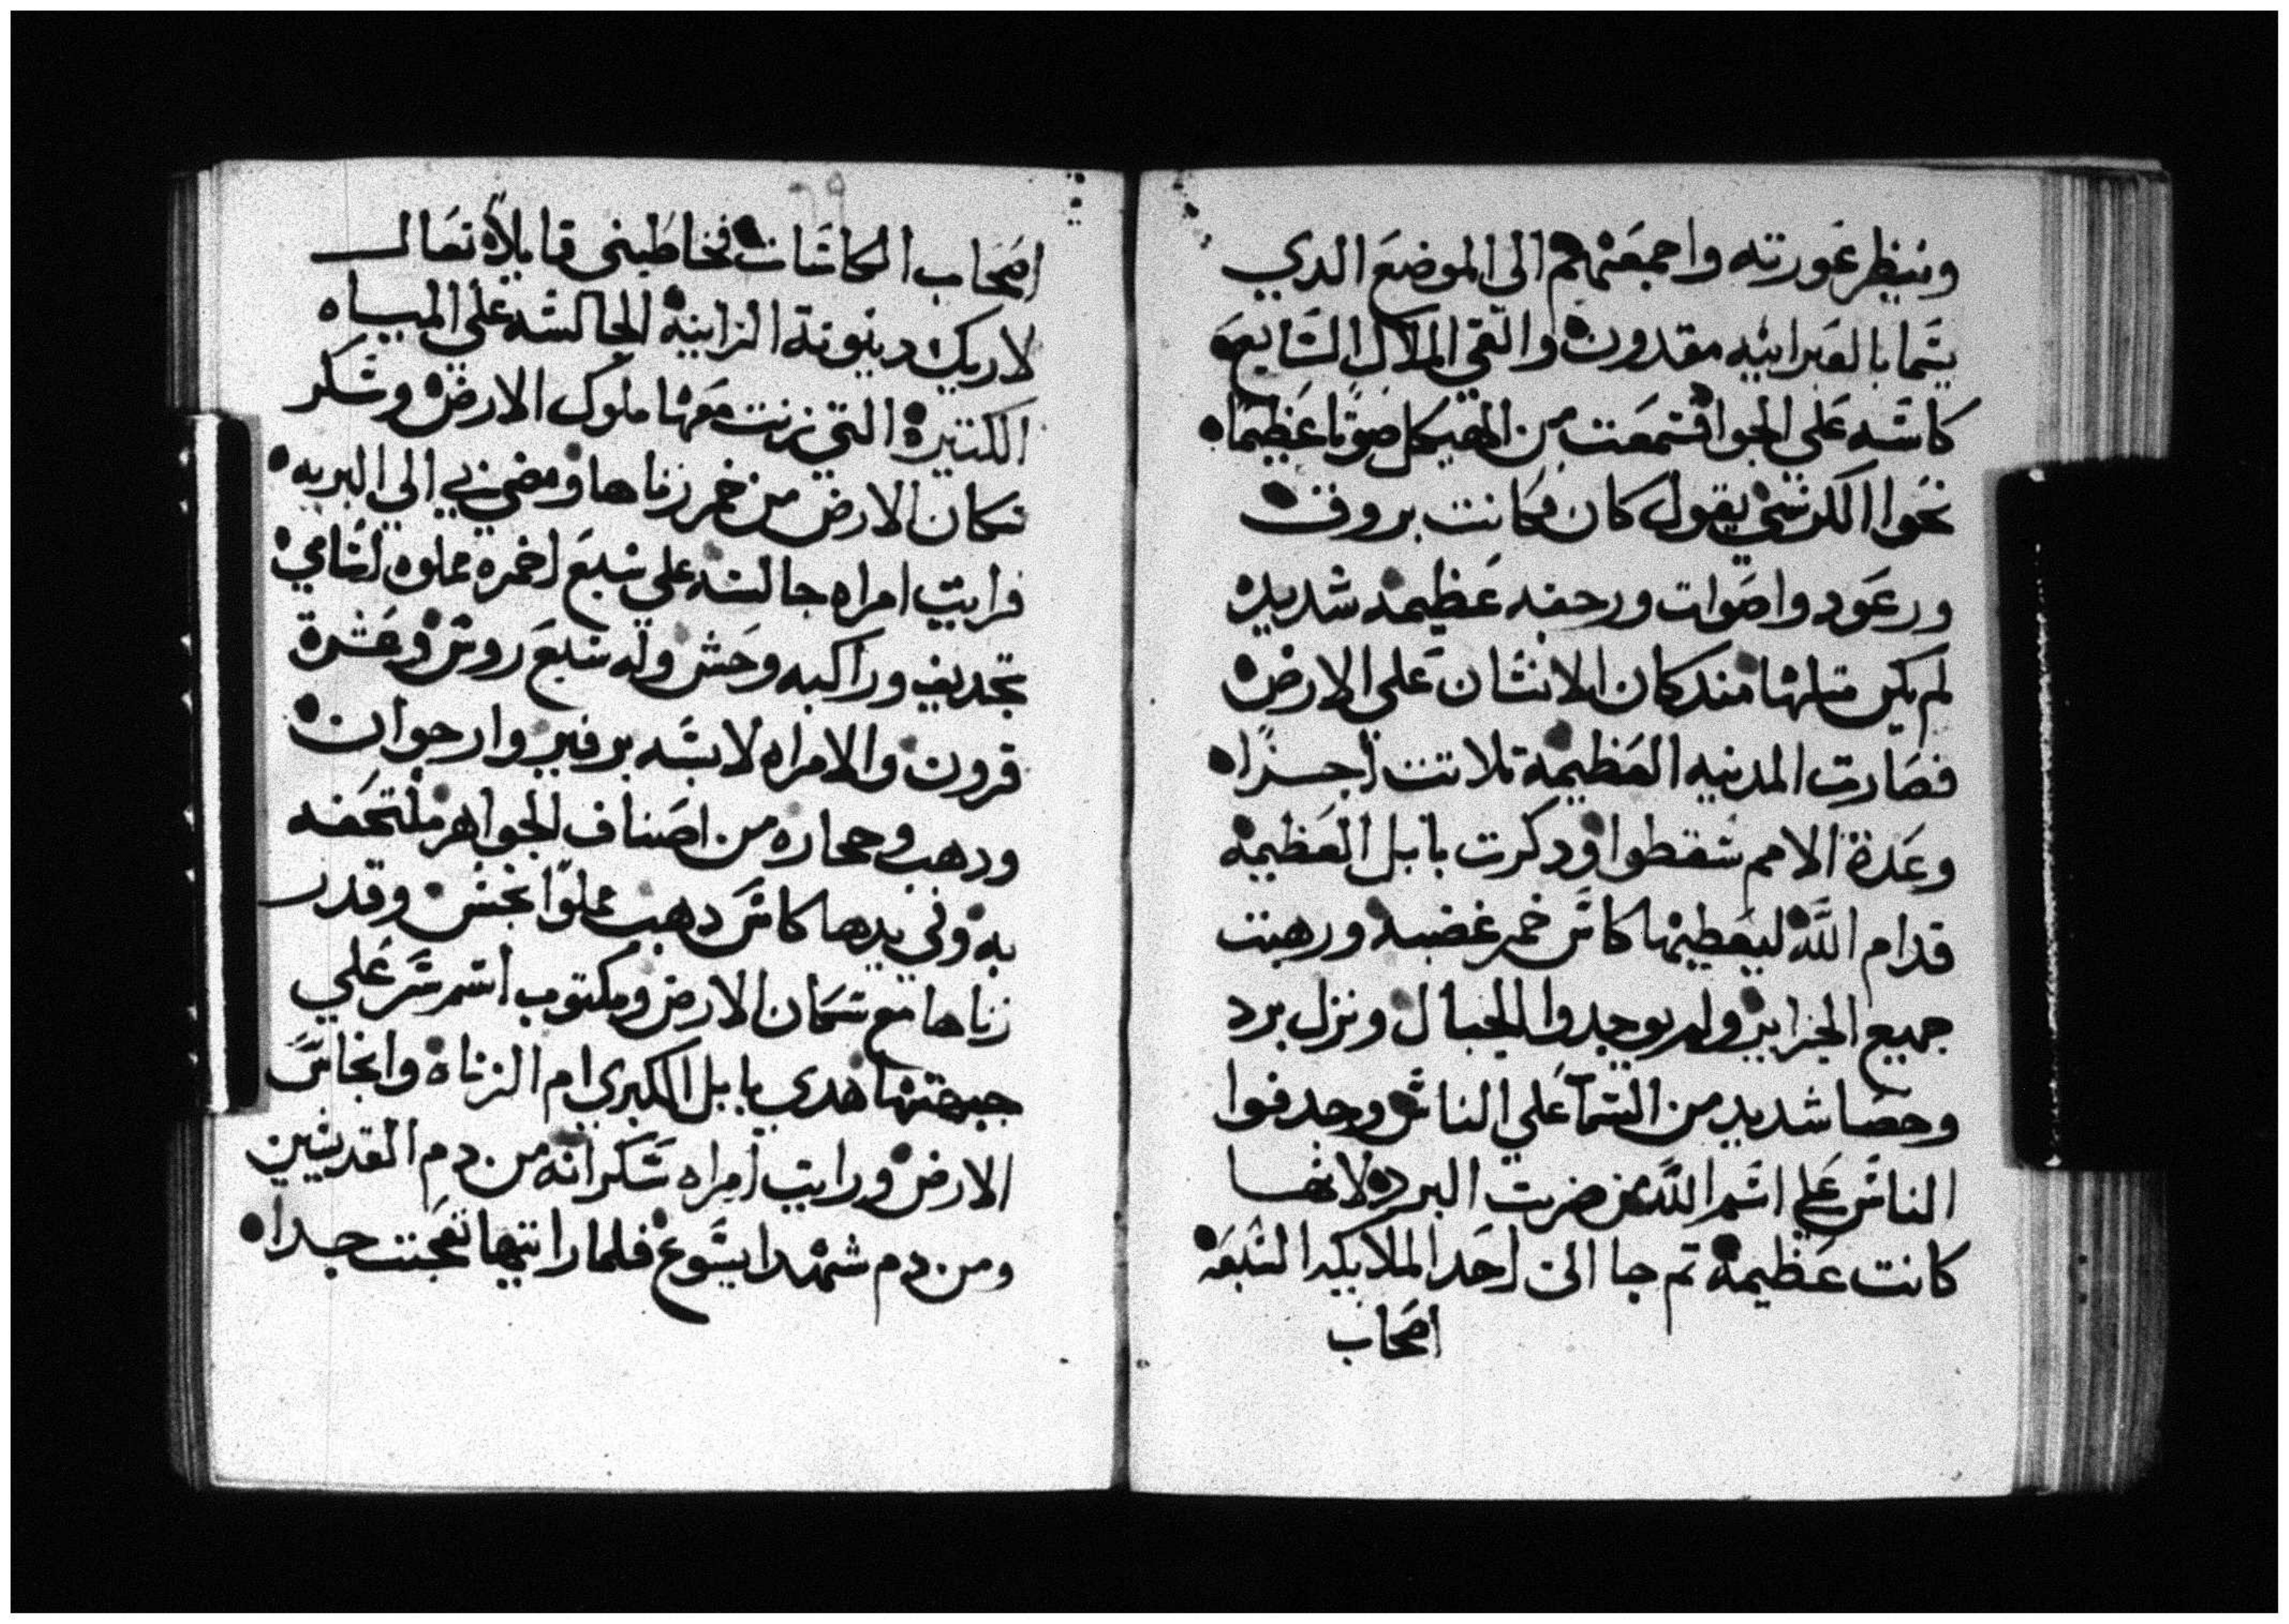 وينظر عورته واجمعتهم الى الموضع الدي
يسما بالعبرانيه مقدون والقي الملاك السابع
كاسه علي الجو فسمعت من الهيكل صوتا عظيما
نحوا الكرسي يقول كان فكانت بروق
ورعود واصوات ورجفه عظيمه شديده
لم يكن متلها مند كان الانسان علي الارض
فصارت المدينه العظيمة تلاتت اجزا
وعدة الامم سقطوا ودكرت بابل العظيمه
قدام الله ليعطيها كاس خمر غضبه ورهبت
جميع الجزاير ولم يوجدوا الجبال ونزل برد
وحصا شديد من السما علي الناس وجدفوا
الناس علي اسم الله من ضربت البرد لانها
كانت عظيمه تم جا الى احد الملايكه السبعه
اصحاب
اصحاب الكاسات فخاطبني قايلا تعال
لاريك دينونة الزانية الجالسه علي المياه
الكتيرة التي زنت معها ملوك الارض وسكر
سكان الارض من خمر زناها ومضي بي الي البريه
فرايت امراه جالسه علي سبع اخمرة مملوه اسامي
تجديف وراكبه وحش وله سبع روس وعشرة
قرون والامراه لابسه برفير وارجوان
ودهب وحجاره من اصناف الجواهر ملتحفه
به وفي يدها كاس دهب مملوا نجس وقدر
زناها مع سكان الارض ومكتوب اسم سر علي
جبهتها هدي بابل الكبري ام الزناه وانجاس
الارض ورايت امراه سكرانه من دم القديسين
ومن دم شهدا يسوع فلما رايتها تعجبت جدا